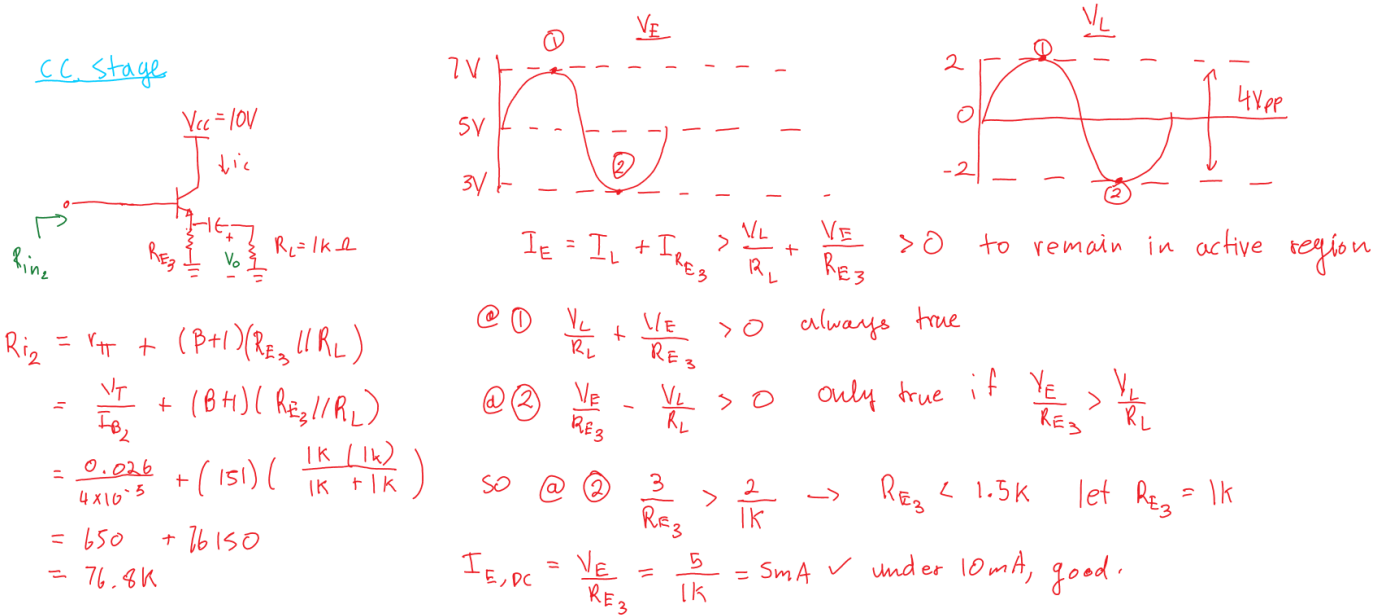 CC stage
Vcc = 10V
↓ic
Rin2
RE3
+
Vo
-
RL = 1k Ω
Ri2 = rπ + (β+1)(RE3 // RL)
= VT/IB2 + (β+1)(RE3 // RL)
= 0.026/4x10^-5 + (151)(1K (1k)/1K + 1K)
= 650 + 76150
= 76.8K
VE
①
7V
5V
②
3V
VL
①
2
4Vpp
0
-2
②
IE = IL + IRE3 > VL/RL + VE/RE3 > 0 to remain in active region
@ ① VL/RL + VE/RE3 > 0 always true
@ ② VE/RE3 - VL/RL > 0 only true if VE/RE3 > VL/RL
so @ ② 3/RE3 > 2/1K → RE3 < 1.5K let RE3 = 1k
IE,DC = VE/RE3 = 5/1K = 5mA ✓ under 10mA, good.